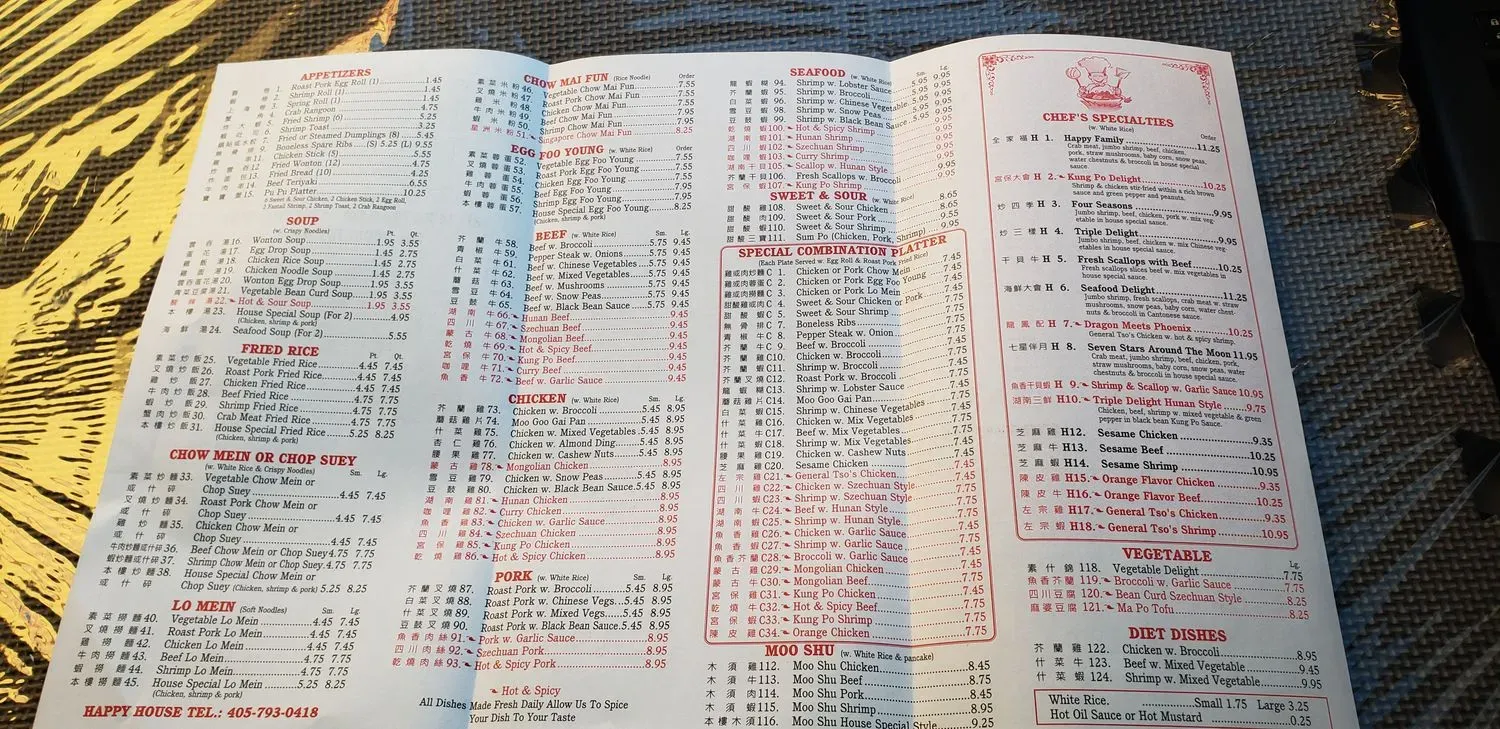 APPETIZERS
1. Roast Pork Egg Roll (1) 1.45
2. Shrimp Roll (1) 1.45
3. Spring Roll (1) 1.45
4. Crab Rangoon 4.75
5. Fried Shrimp (6) 5.25
6. Shrimp Toast 3.25
7. Fried or Steamed Dumplings (8) 5.45
Boneless Spare Ribs (S) 5.25 (L) 9.55
11. Chicken Stick (5) 5.55
12. Fried Wonton (12) 4.75
13. Fried Bread (10) 4.25
14. Beef Teriyaki 6.55
15. Pu Pu Platter 10.25
6 Sweet & Sour Chicken, 2 Chicken Stick, 2 Egg Roll,
2 Fantail Shrimp, 2 Shrimp Toast, 2 Crab Rangoon
SOUP
(w. Crispy Noodles) Pt. Qt.
雲吞湯16. Wonton Soup 1.95 3.55
蛋花湯17. Egg Drop Soup 1.45 2.75
雞飯湯18. Chicken Rice Soup 1.45 2.75
雞麵湯19. Chicken Noodle Soup 1.45 2.75
雲吞蛋花湯20. Wonton Egg Drop Soup 1.95 3.55
蔬菜豆腐湯21. Vegetable Bean Curd Soup 1.95 3.55
酸辣湯22. Hot & Sour Soup 1.95 3.55
本樓湯23. House Special Soup (For 2) 4.95
(Chicken, shrimp & pork)
海鮮湯24. Seafood Soup (For 2) 5.55
FRIED RICE Pt. Qt.
素菜炒飯25. Vegetable Fried Rice 4.45 7.45
叉燒炒飯26. Roast Pork Fried Rice 4.45 7.45
雞炒飯27. Chicken Fried Rice 4.45 7.45
牛肉炒飯28. Beef Fried Rice 4.75 7.75
蝦炒飯29. Shrimp Fried Rice 4.75 7.75
蟹肉炒飯30. Crab Meat Fried Rice 4.75 7.75
本樓炒飯31. House Special Fried Rice 5.25 8.25
(Chicken, shrimp & pork)
CHOW MEIN OR CHOP SUEY
(w. White Rice & Crispy Noodles) Sm. Lg.
素菜炒麵33. Vegetable Chow Mein or
或什碎 Chop Suey 4.45 7.45
叉燒炒麵34. Roast Pork Chow Mein or
或什碎 Chop Suey 4.45 7.45
雞炒麵35. Chicken Chow Mein or
或什碎 Chop Suey 4.45 7.45
牛肉炒麵或什碎36. Beef Chow Mein or Chop Suey 4.75 7.75
蝦炒麵或什碎37. Shrimp Chow Mein or Chop Suey 4.75 7.75
本樓炒麵38. House Special Chow Mein or
或什碎 Chop Suey (Chicken, shrimp & pork) 5.25 8.25
LO MEIN (Soft Noodles) Sm. Lg.
素菜撈麵40. Vegetable Lo Mein 4.45 7.45
叉燒撈麵41. Roast Pork Lo Mein 4.45 7.45
雞撈麵42. Chicken Lo Mein 4.45 7.45
牛肉撈麵43. Beef Lo Mein 4.75 7.75
蝦撈麵44. Shrimp Lo Mein 4.75 7.75
本樓撈麵45. House Special Lo Mein 5.25 8.25
(Chicken, shrimp & pork)
HAPPY HOUSE TEL.: 405-793-0418
CHOW MAI FUN (Rice Noodle) Order
素菜米粉46. Vegetable Chow Mai Fun 7.45
叉燒米粉47. Roast Pork Chow Mai Fun 7.45
雞米粉48. Chicken Chow Mai Fun 7.45
牛肉米粉49. Beef Chow Mai Fun 7.95
蝦米粉50. Shrimp Chow Mai Fun 7.95
星洲米粉51. Singapore Chow Mai Fun 8.25
EGG FOO YOUNG (w. White Rice) Order
素菜蓉蛋52. Vegetable Egg Foo Young 7.45
叉燒蓉蛋53. Roast Pork Egg Foo Young 7.45
雞蓉蛋54. Chicken Egg Foo Young 7.45
牛肉蓉蛋55. Beef Egg Foo Young 7.95
蝦蓉蛋56. Shrimp Egg Foo Young 7.95
本樓蓉蛋57. House Special Egg Foo Young 8.25
(Chicken, shrimp & pork)
BEEF (w. White Rice) Sm. Lg.
芥蘭牛58. Beef w. Broccoli 5.75 9.45
青椒牛59. Pepper Steak w. Onions 5.75 9.45
白菜牛61. Beef w. Chinese Vegetables 5.75 9.45
什菜牛62. Beef w. Mixed Vegetables 5.75 9.45
蘑菇牛63. Beef w. Mushrooms 5.75 9.45
雪豆牛64. Beef w. Snow Peas 5.75 9.45
豆鼓牛65. Beef w. Black Bean Sauce 5.75 9.45
湖南牛66. Hunan Beef 9.45
四川牛67. Szechuan Beef 9.45
蒙古牛68. Mongolian Beef 9.45
乾燒牛69. Hot & Spicy Beef 9.45
宮保牛70. Kung Po Beef 9.45
咖喱牛71. Curry Beef 9.45
魚香牛72. Beef w. Garlic Sauce 9.45
CHICKEN (w. White Rice) Sm. Lg.
芥蘭雞73. Chicken w. Broccoli 5.45 8.95
蘑菇雞片74. Moo Goo Gai Pan 5.45 8.95
什菜雞75. Chicken w. Mixed Vegetables 5.45 8.95
杏仁雞76. Chicken w. Almond Ding 5.45 8.95
腰果雞77. Chicken w. Cashew Nuts 5.45 8.95
蒙古雞78. Mongolian Chicken 8.95
雪豆雞79. Chicken w. Snow Peas 5.45 8.95
豆鼓雞80. Chicken w. Black Bean Sauce 5.45 8.95
湖南雞81. Hunan Chicken 8.95
咖喱雞82. Curry Chicken 8.95
魚香雞83. Chicken w. Garlic Sauce 8.95
四川雞84. Szechuan Chicken 8.95
宮保雞85. Kung Po Chicken 8.95
乾燒雞86. Hot & Spicy Chicken 8.95
PORK (w. White Rice) Sm. Lg.
芥蘭叉燒87. Roast Pork w. Broccoli 5.45 8.95
白菜叉燒88. Roast Pork w. Chinese Vegs. 5.45 8.95
什菜叉燒89. Roast Pork w. Mixed Vegs. 5.45 8.95
豆鼓叉燒90. Roast Pork w. Black Bean Sauce 5.45 8.95
魚香肉絲91. Pork w. Garlic Sauce 8.95
四川肉絲92. Szechuan Pork 8.95
乾燒肉絲93. Hot & Spicy Pork 8.95
Hot & Spicy
All Dishes Made Fresh Daily Allow Us To Spice
Your Dish To Your Taste
SEAFOOD (w. White Rice) Sm. Lg.
龍蝦糊94. Shrimp w. Lobster Sauce 5.95 9.95
芥蘭蝦95. Shrimp w. Broccoli 5.95 9.95
白菜蝦96. Shrimp w. Chinese Vegetable 5.95 9.95
雪豆蝦98. Shrimp w. Snow Peas 5.95 9.95
豆鼓蝦99. Shrimp w. Black Bean Sauce 5.95 9.95
乾燒蝦100. Hot & Spicy Shrimp 9.95
湖南蝦101. Hunan Shrimp 9.95
四川蝦102. Szechuan Shrimp 9.95
咖喱蝦103. Curry Shrimp 9.95
湖南干貝105. Scallop w. Hunan Style 9.95
芥蘭干貝106. Fresh Scallops w. Broccoli 9.95
宮保蝦107. Kung Po Shrimp 9.95
SWEET & SOUR (w. White Rice)
甜酸雞108. Sweet & Sour Chicken 8.65
甜酸肉109. Sweet & Sour Pork 8.65
甜酸蝦110. Sweet & Sour Shrimp 9.55
甜酸三寶111. Sum Po (Chicken, Pork, Shrimp) 9.95
SPECIAL COMBINATION PLATTER
(Each Plate Served w. Egg Roll & Roast Pork Fried Rice)
雞或肉炒麵C 1. Chicken or Pork Chow Mein 7.45
雞或肉蓉蛋C 2. Chicken or Pork Egg Foo Young 7.45
雞或肉撈麵C 3. Chicken or Pork Lo Mein 7.45
甜酸雞或肉C 4. Sweet & Sour Chicken or Pork 7.45
甜酸蝦C 5. Sweet & Sour Shrimp 7.75
無骨排C 7. Boneless Ribs 7.75
青椒牛C 8. Pepper Steak w. Onion 7.75
芥蘭牛C 9. Beef w. Broccoli 7.75
芥蘭雞C10. Chicken w. Broccoli 7.45
芥蘭蝦C11. Shrimp w. Broccoli 7.75
芥蘭叉燒C12. Roast Pork w. Broccoli 7.45
龍蝦糊C13. Shrimp w. Lobster Sauce 7.75
蘑菇雞片C14. Moo Goo Gai Pan 7.45
白菜蝦C15. Shrimp w. Chinese Vegetables 7.75
什菜雞C16. Chicken w. Mix Vegetables 7.45
什菜牛C17. Beef w. Mix Vegetables 7.75
什菜蝦C18. Shrimp w. Mix Vegetables 7.75
腰果雞C19. Chicken w. Cashew Nuts 7.45
芝麻雞C20. Sesame Chicken 7.45
左宗雞C21. General Tso's Chicken 7.45
四川雞C22. Chicken w. Szechuan Style 7.45
四川蝦C23. Shrimp w. Szechuan Style 7.75
湖南牛C24. Beef w. Hunan Style 7.75
湖南蝦C25. Shrimp w. Hunan Style 7.75
魚香雞C26. Chicken w. Garlic Sauce 7.45
魚香蝦C27. Shrimp w. Garlic Sauce 7.75
魚香芥蘭C28. Broccoli w. Garlic Sauce 7.45
蒙古雞C29. Mongolian Chicken 7.45
蒙古牛C30. Mongolian Beef 7.75
宮保雞C31. Kung Po Chicken 7.45
乾燒牛C32. Hot & Spicy Beef 7.75
宮保蝦C33. Kung Po Shrimp 7.75
陳皮雞C34. Orange Chicken 7.75
MOO SHU (w. White Rice & pancake)
木須雞112. Moo Shu Chicken 8.45
木須牛113. Moo Shu Beef 8.75
木須肉114. Moo Shu Pork 8.45
木須蝦115. Moo Shu Shrimp 8.95
本樓木須116. Moo Shu House Special Style 9.25
CHEF'S SPECIALTIES
(w. White Rice) Order
全家福H 1. Happy Family 11.25
Crab meat, jumbo shrimp, beef, chicken,
pork, straw mushrooms, baby corn, snow peas,
water chestnuts & broccoli in house special
sauce.
宮保大會H 2. Kung Po Delight 10.25
Shrimp & chicken stir-fried within a rich brown
sauce and green pepper and peanuts.
炒四季H 3. Four Seasons 9.95
Jumbo shrimp, beef, chicken, pork w. mix veg-
etable in house special sauce.
炒三樣H 4. Triple Delight 9.95
Jumbo shrimp, beef, chicken w. mix Chinese veg-
etables in house special sauce.
干貝牛H 5. Fresh Scallops with Beef 10.25
Fresh scallops slices beef w. mix vegetables in
house special sauce.
海鮮大會H 6. Seafood Delight 11.25
Jumbo shrimp, fresh scallops, crab meat w. straw
mushrooms, snow peas, baby corn, water chest-
nuts & broccoli in Cantonese sauce.
龍鳳配H 7. Dragon Meets Phoenix 10.25
General Tso's Chicken w. hot & spicy shrimp.
七星伴月H 8. Seven Stars Around The Moon 11.95
Crab meat, jumbo shrimp, beef, chicken, pork,
straw mushrooms, baby corn, snow peas, water
chestnuts & broccoli in house special sauce.
魚香干貝蝦H 9. Shrimp & Scallop w. Garlic Sauce 10.95
湖南三鮮H10. Triple Delight Hunan Style 9.75
Chicken, beef, shrimp w. mixed vegetable & green
pepper in black bean Kung Po Sauce.
芝麻雞H12. Sesame Chicken 9.35
芝麻牛H13. Sesame Beef 10.25
芝麻蝦H14. Sesame Shrimp 10.95
陳皮雞H15. Orange Flavor Chicken 9.35
陳皮牛H16. Orange Flavor Beef 10.25
左宗雞H17. General Tso's Chicken 9.35
左宗蝦H18. General Tso's Shrimp 10.95
VEGETABLE Lg.
素什錦118. Vegetable Delight 7.75
魚香芥蘭119. Broccoli w. Garlic Sauce 7.75
四川豆腐120. Bean Curd Szechuan Style 8.25
麻婆豆腐121. Ma Po Tofu 8.25
DIET DISHES Lg.
芥蘭雞122. Chicken w. Broccoli 8.95
什菜牛123. Beef w. Mixed Vegetable 9.45
什菜蝦124. Shrimp w. Mixed Vegetable 9.95
White Rice. Small 1.75 Large 3.25
Hot Oil Sauce or Hot Mustard 0.25